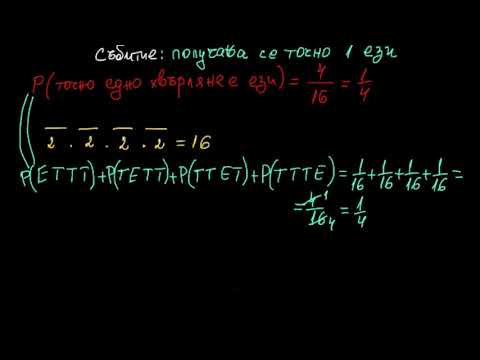 Събитие: получава се точно 1 ези
P(точно едно хвърляне е ези) = 4/16 = 1/4
2 . 2 . 2 . 2 = 16
P(ЕТТТ)+P(ТЕТТ)+P(ТТЕТ)+P(ТТТЕ)= 1/16 + 1/16 + 1/16 + 1/16 =
= 4 1/16 4 = 1/4